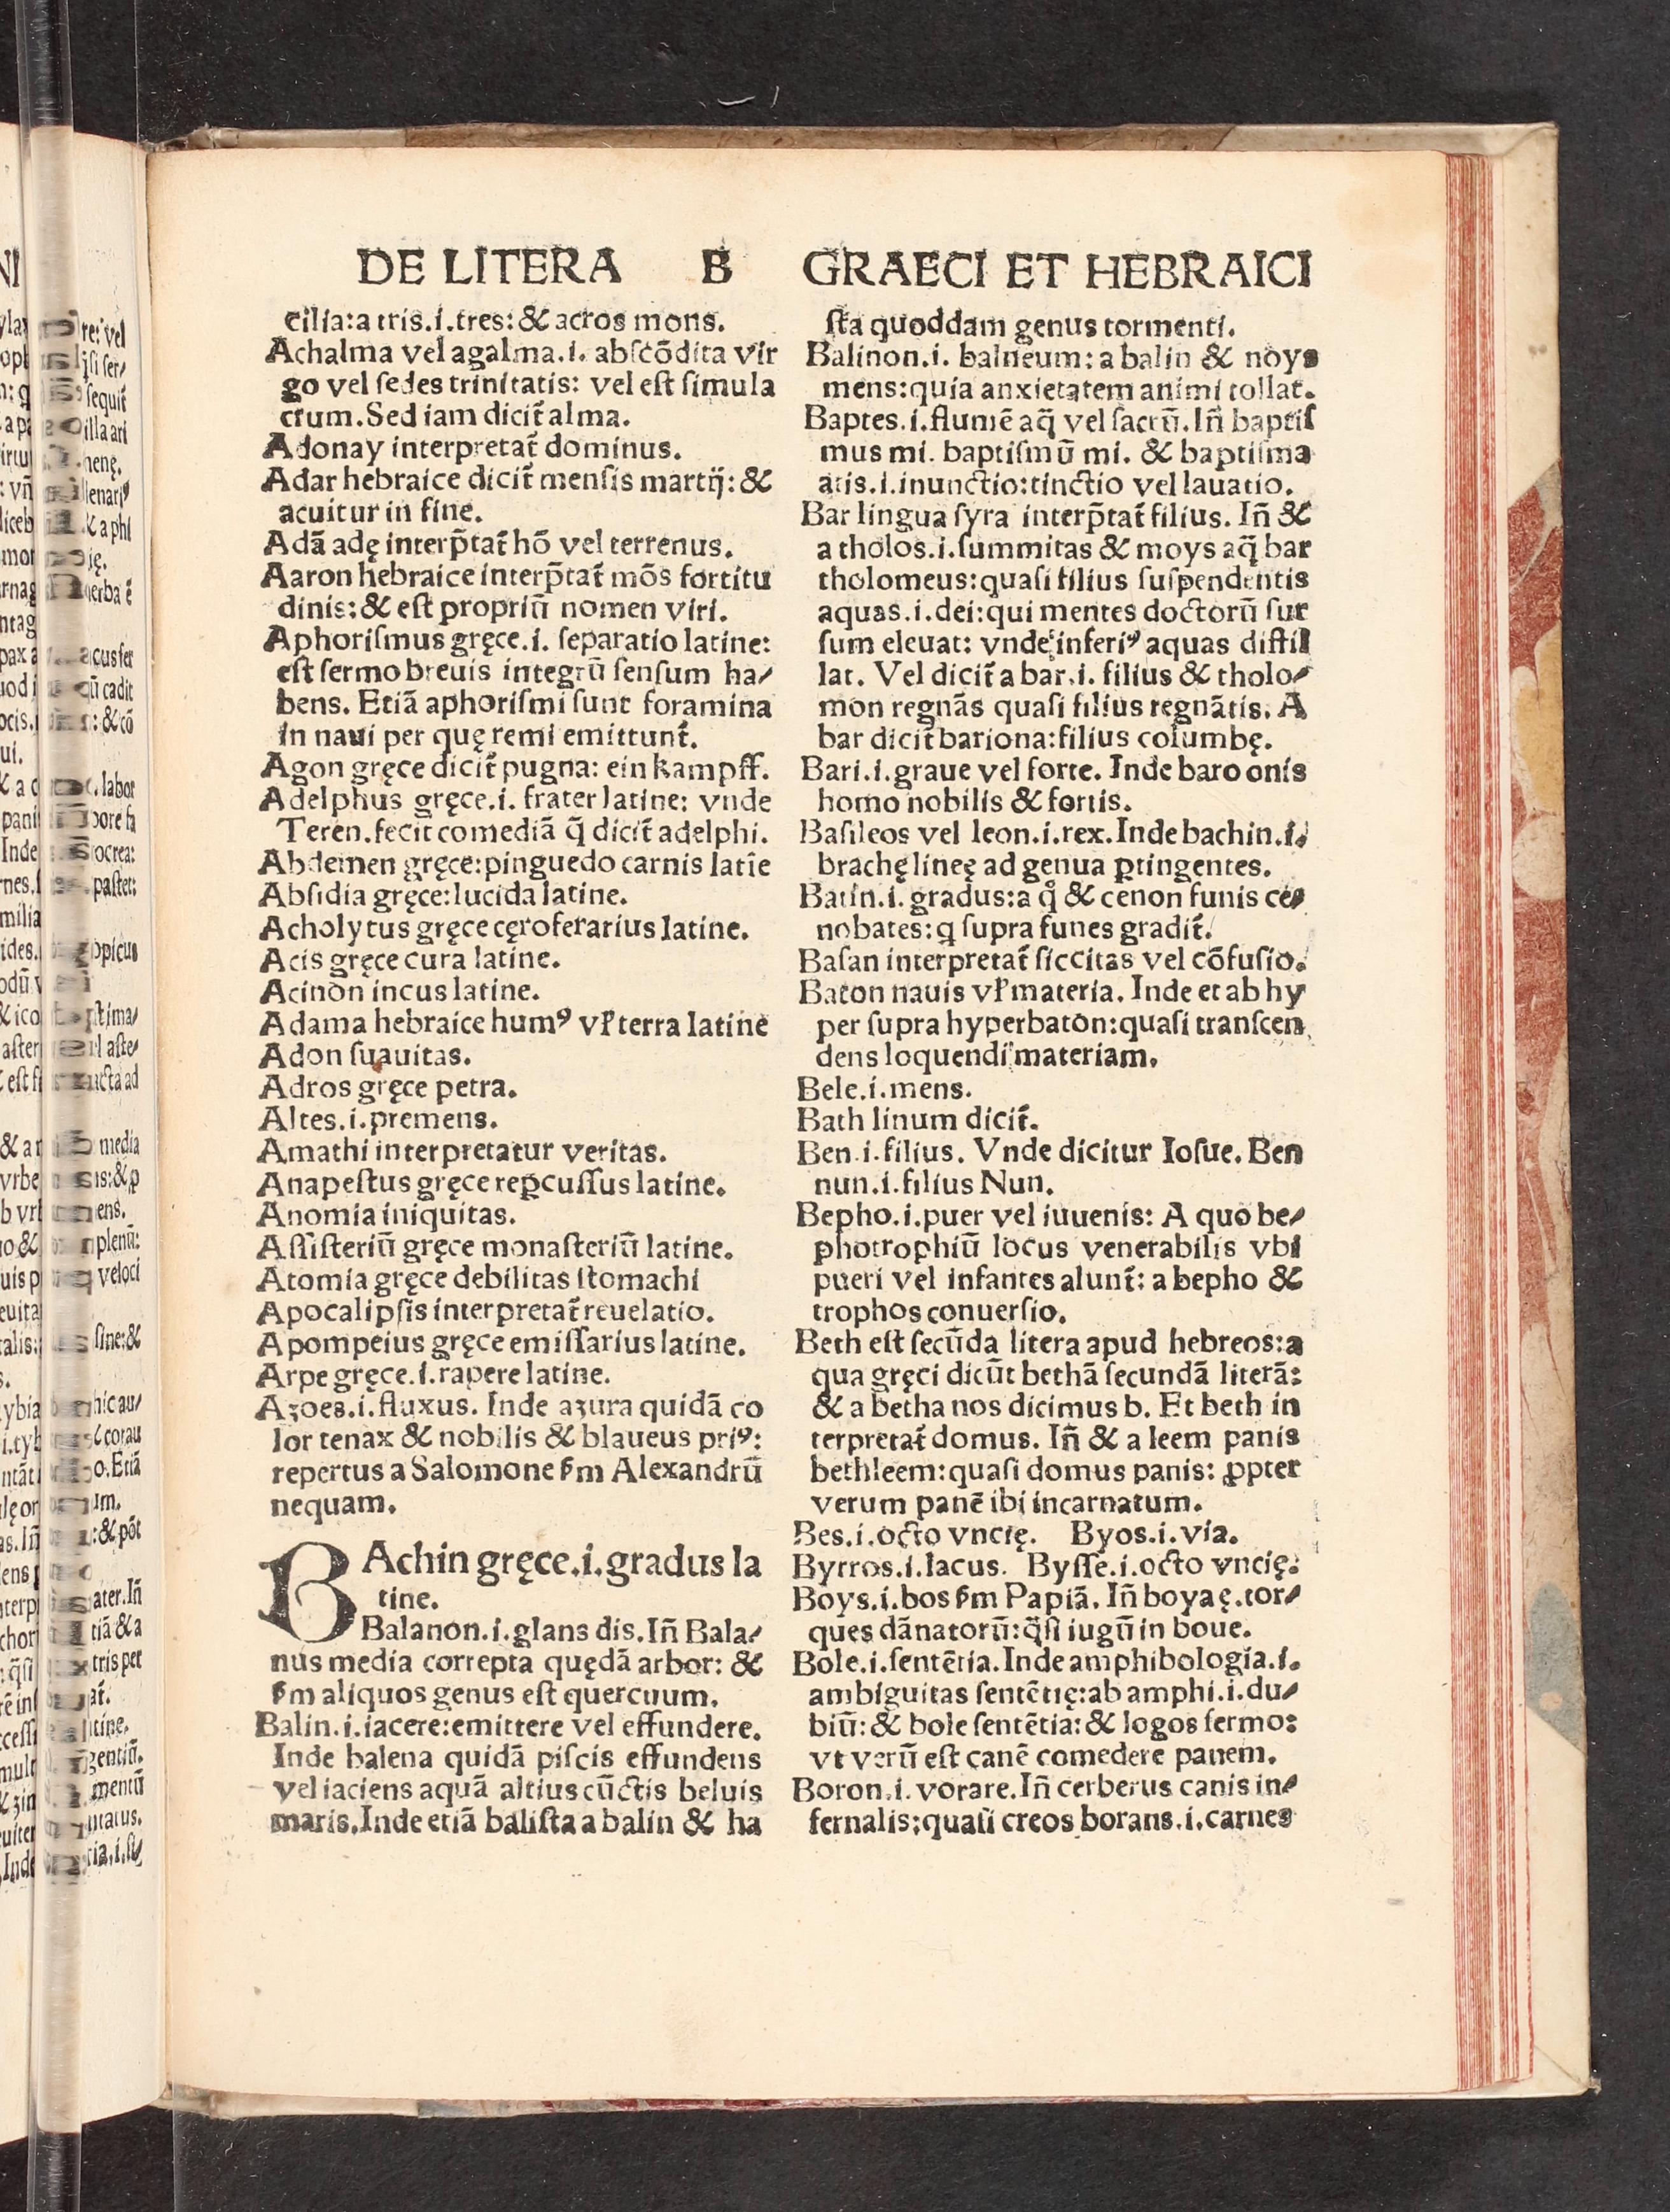 DE LITERA B GRAECI ET HEBRAICI
cilia:a tris.i.tres:& acros mons.
Achalma vel agalma.i. abscõdita vir
go vel sedes trinitatis: vel est simula
crum.Sed iam dicit̃ alma.
Adonay interpretat̃ dominus.
Adar hebraice dicit̃ mensis martij: &
acuitur in fine.
Adã adę interp̃tat̃ hõ vel terrenus.
Aaron hebraice interp̃tat̃ mõs fortitu
dinis:& est propriũ nomen viri.
Aphorismus gręce.i. separatio latine:
est sermo breuis integrũ sensum ha⸗
bens. Etiã aphorismi sunt foramina
in naui per quę remi emittunt̃.
Agon gręce dicit̃ pugna: ein kampff.
Adelphus gręce.i. frater latine: vnde
Teren.fecit comediã q̃ dicit̃ adelphi.
Abdemen gręce:pinguedo carnis latĩe
Absidia gręce:lucida latine.
Acholytus gręce cęroferarius latine.
Acis gręce cura latine.
Acinon incus latine.
Adama hebraice humꝰ vl̃ terra latine
Adon suauitas.
Adros gręce petra.
Altes.i.premens.
Amathi interpretatur veritas.
Anapestus gręce reꝑcussus latine.
Anomia iniquitas.
Assisteriũ gręce monasteriũ latine.
Atomia gręce debilitas stomachi
Apocalipsis interpretat̃ reuelatio.
Apompeius gręce emissarius latine.
Arpe gręce.i.rapere latine.
Azoes.i.fluxus. Inde azura quidã co
lor tenax & nobilis & blaueus priꝰ:
repertus a Salomone ẜm Alexandrũ
nequam.
BAchin gręce.i.gradus la
tine.
Balanon.i.glans dis.Iñ Bala⸗
nus media correpta quędã arbor: &
ẜm aliquos genus est quercuum.
Balin.i.iacere:emittere vel effundere.
Inde balena quidã piscis effundens
vel iaciens aquã altius cũctis beluis
maris.Inde etiã balista a balin & ha
sta quoddam genus tormenti.
Balinon.i. balneum: a balin & noys
mens:quia anxietatem animi tollat.
Baptes.i.flumẽ aq̃ vel sacrũ.Iñ baptis
mus mi. baptismũ mi. & baptisma
atis.i.inunctio:tinctio vel lauatio.
Bar lingua syra interp̃tat̃ filius. Iñ &
a tholos.i.summitas & moys aq̃ bar
tholomeus:quasi filius suspendentis
aquas.i.dei:qui mentes doctorũ sur
sum eleuat: vnde inferiꝰ aquas distil
lat. Vel dicit̃ a bar.i. filius & tholo⸗
mon regnãs quasi filius regnãtis. A
bar dicit̃ bariona:filius columbę.
Bari.i.graue vel forte. Inde baro onis
homo nobilis & fortis.
Basileos vel leon.i.rex.Inde bachin.i.
brachę lineę ad genua ꝑtingentes.
Batin.i. gradus:a qͦ & cenon funis ce⸗
nobates:q supra funes gradit̃.
Basan interpretat̃ siccitas vel cõfusio.
Baton nauis vl̃ materia. Inde et ab hy
per supra hyperbaton:quasi transcen
dens loquendi materiam.
Bele.i.mens.
Bath linum dicit̃.
Ben.i.filius. Vnde dicitur Iosue. Ben
nun.i.filius Nun.
Bepho.i.puer vel iuuenis: A quo be⸗
photrophiũ locus venerabilis vbi
pueri vel infantes alunt̃: a bepho &
trophos conuersio.
Beth est secũda litera apud hebreos:a
qua gręci dicũt bethã secundã literã:
& a betha nos dicimus b. Et beth in
terpretat̃ domus. Iñ & a leem panis
bethleem:quasi domus panis: ꝓpter
verum panẽ ibi incarnatum.
Bes.i.octo vncię. Byos.i.via.
Byrros.i.lacus. Bysse.i.octo vncię.
Boys.i.bos ẜm Papiã. Iñ boyaę.tor⸗
ques dãnatorũ:q̃si iugũ in boue.
Bole.i.sentẽtia.Inde amphibologia.i.
ambiguitas sentẽtię:ab amphi.i.du⸗
biũ:& bole sentẽtia:& logos sermo:
vt verũ est canẽ comedere panem.
Boron.i. vorare.Iñ cerberus canis in⸗
fernalis:quasi creos borans.i.carnes